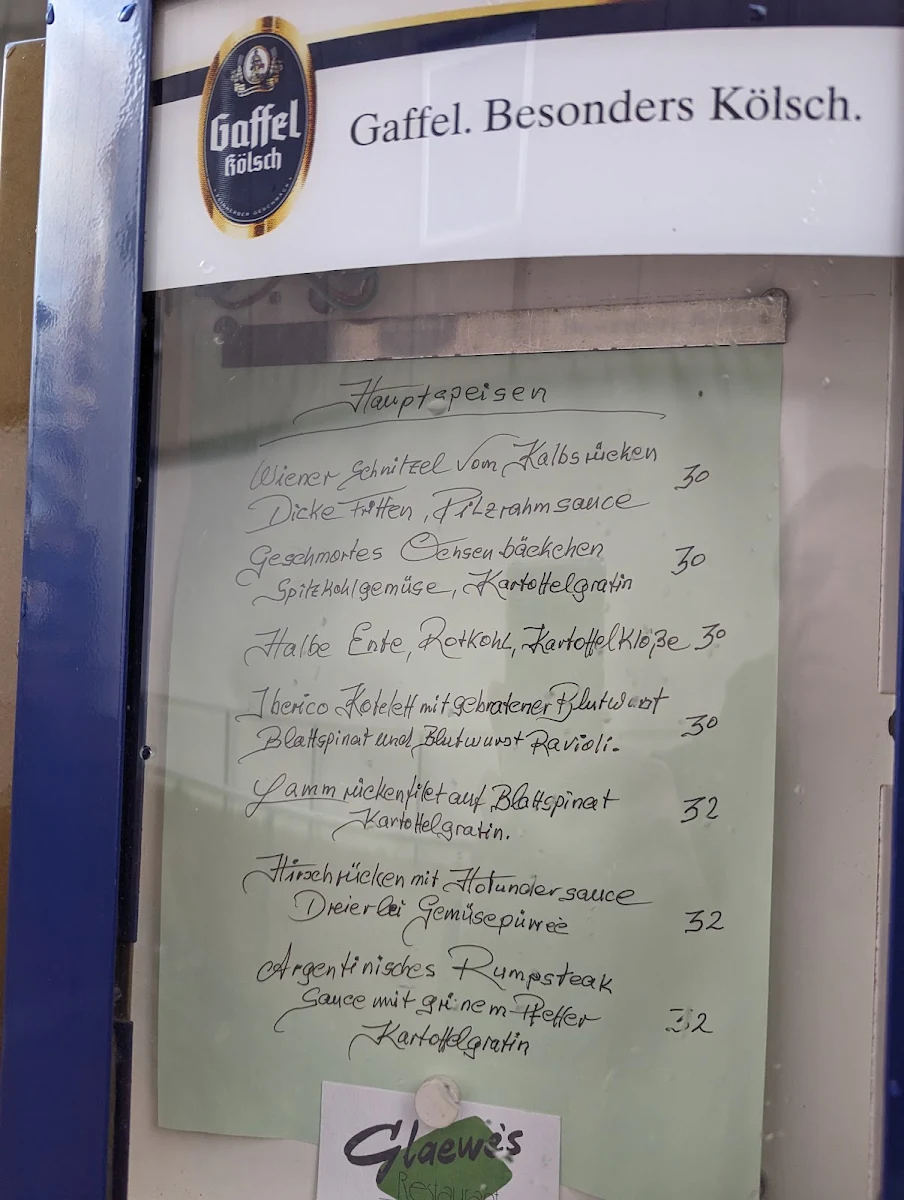 Gaffel
Kölsch
Gaffel. Besonders Kölsch.
Hauptspeisen
Wiener Schnitzel vom Kalbsrücken
Dicke Fritten, Pilzrahmsauce 30
Geschmortes Ochsenbäckchen
Spitzkohlgemüse, Kartoffelgratin 30
Halbe Ente, Rotkohl, Kartoffelklöße 30
Iberico Kotelett mit gebratener Blutwurst
Blattspinat und Blutwurst Ravioli. 30
Lammrückenfilet auf Blattspinat 32
Kartoffelgratin.
Hirschrücken mit Holundersauce
Dreierlei Gemüsepürreè 32
Argentinisches Rumpsteak
Sauce mit grünem Pfeffer 32
Kartoffelgratin
Glaewe's
Restaurant